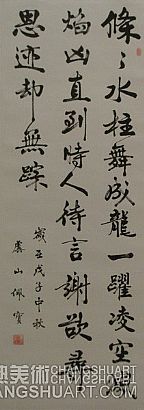 條々水柱舞成龍一躍凌空鬥
焰凶直到時人待言謝欲尋
恩迹却無蹤
歲在戊子中秋
虞山佩寶
CHANGSHUART